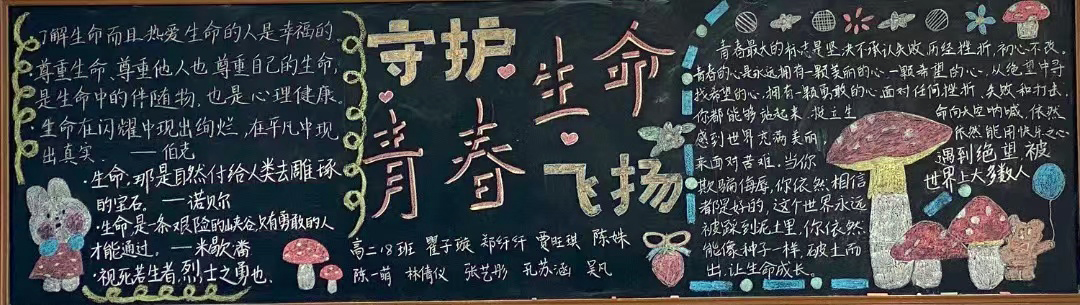 了解生命而且热爱生命的人是幸福的.
·尊重生命、尊重他人也尊重自己的生命,
是生命中的伴随物,也是心理健康。
·生命在闪耀中现出绚烂,在平凡中现
出真实. ——伯克
·生命,那是自然付给人类去雕琢
的宝石。——诺贝尔
·生命是一条艰险的峡谷,只有勇敢的人
才能通过。——米歇潘
·视死若生者,烈士之勇也.
守护生命
青春飞扬
高二18班 瞿子璇 郑衍行 贾旺琪 陈姝
陈一萌 林倩仪 张艺彤 孔苏涵 吴凡
青春最大的标志是坚决不承认失败,历经挫折,初心不改.
青春的心是永远拥有一颗美丽的心一颗希望的心,从绝望中寻
找希望的心,拥有一颗勇敢的心面对任何挫折,失败和打击,
你都能够站起来,挺立生命向天空呐喊,依然
感到世界充满美丽,依然能用快乐之心
来面对苦难,当你遇到绝望,被
欺骗侮辱,你依然相信世界上大多数人
都是好的,这个世界永远
被踩到泥土里,你依然
能像种子一样,破土而
出,让生命成长。